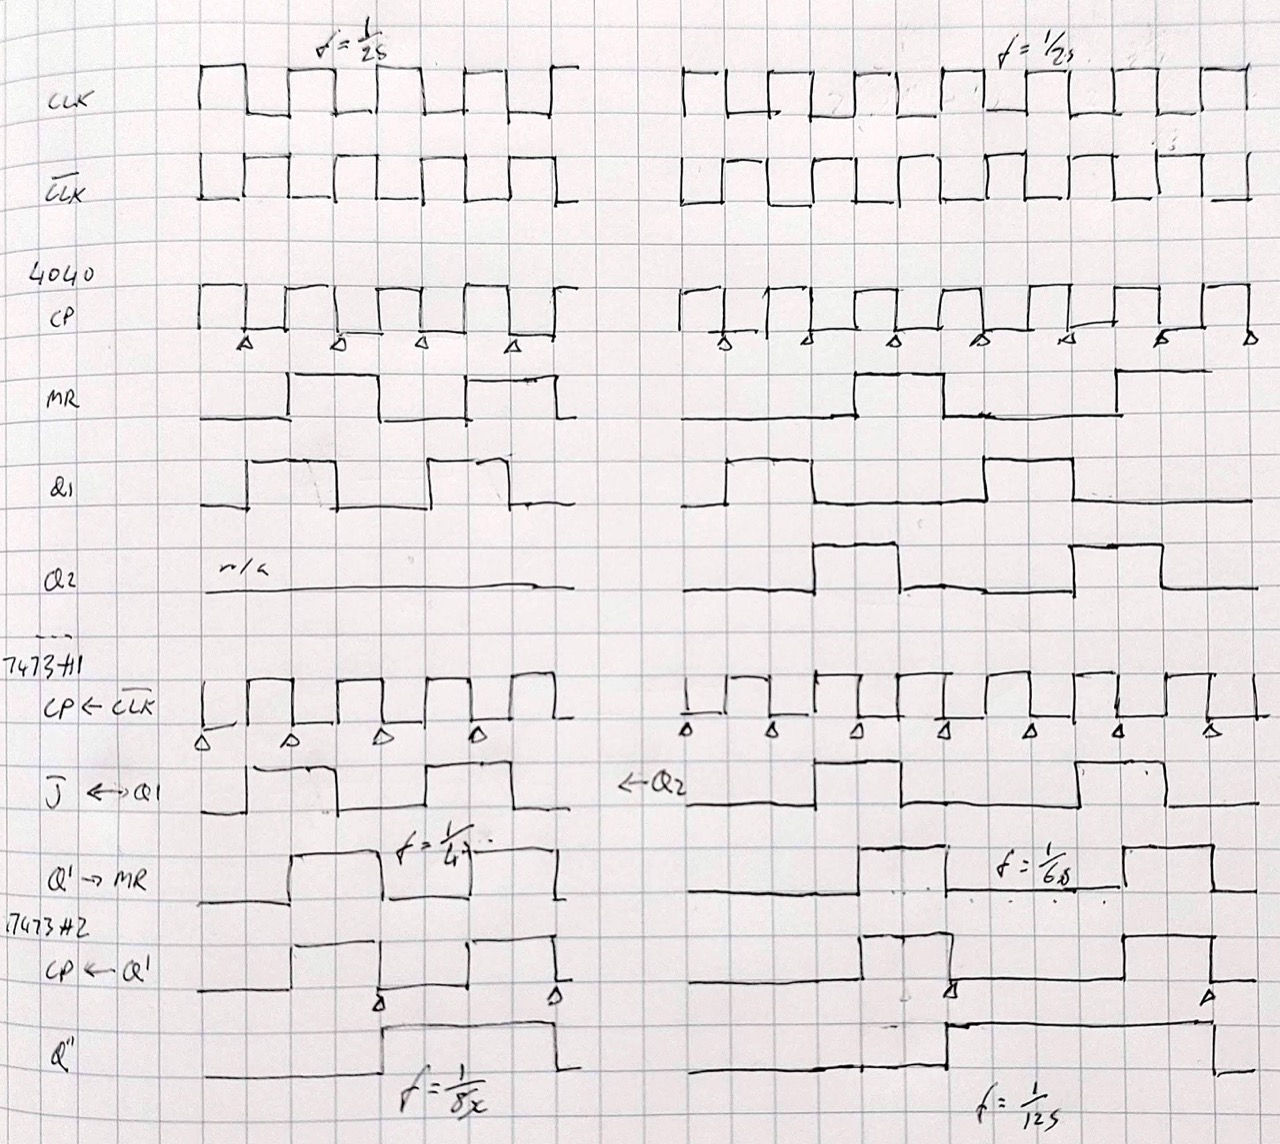 f = 1/2s
f = 1/2s
CLK
C̅L̅K̅
4040
CP
MR
Q1
Q2
n/a
7473#1
CP ← C̅L̅K̅
J ↔ Q1
← Q2
f = 1/4
Q' → MR
f = 1/6s
7473#2
CP ← Q'
Q''
f = 1/8s
f = 1/12s